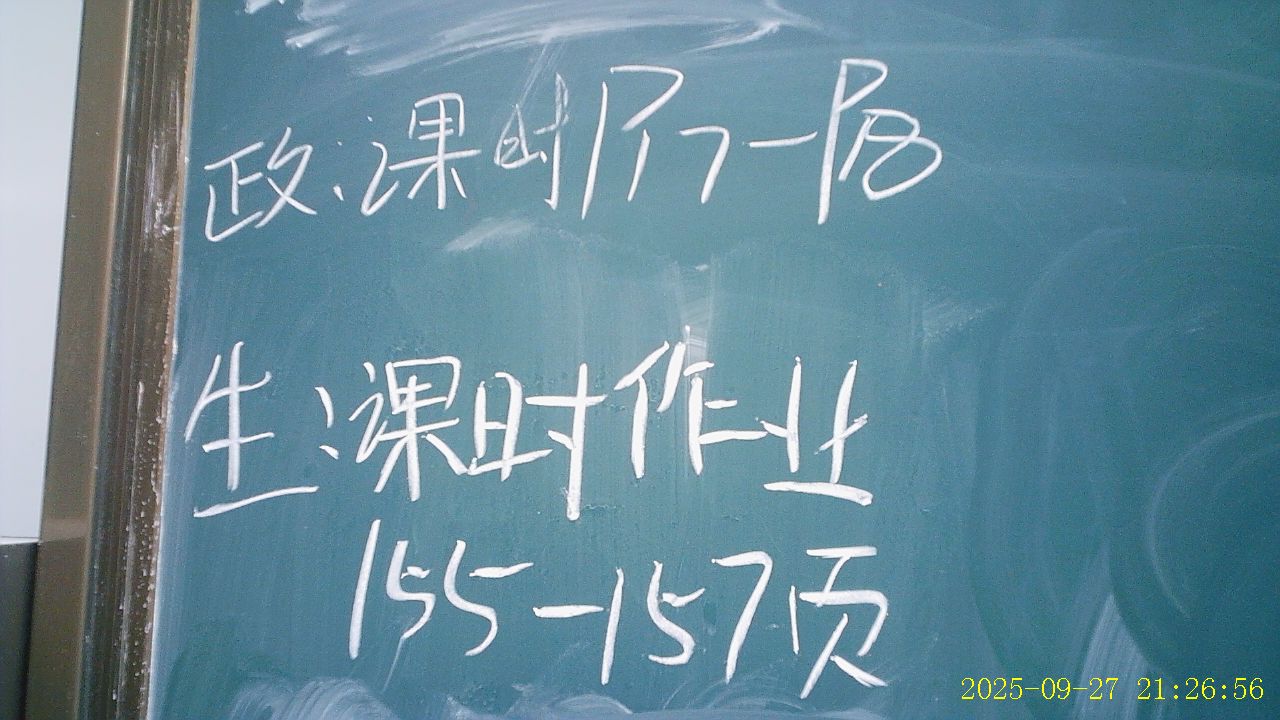 政:课时P17-P18
生:课时作业
155-157页
2025-09-27 21:26:56